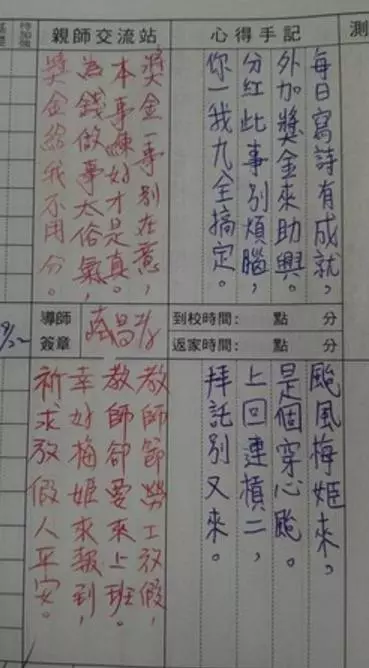 心得手記
每日寫詩有成就，
外加獎金來助興。
分紅此事別煩腦，
你一我九全搞定。
親師交流站
獎金一事別在意，
本事練好才是真。
為錢做事太俗氣，
獎金給我不用分。
待加強
測
到校時間： 點 分
返家時間： 點 分
導師
簽章
9/22
颱風梅姬來，
是個穿心颱。
上回連槓二，
拜託別又來。
教師節勞工放假，
教師卻要來上班。
幸好梅姬來報到，
祈求放假人平安。